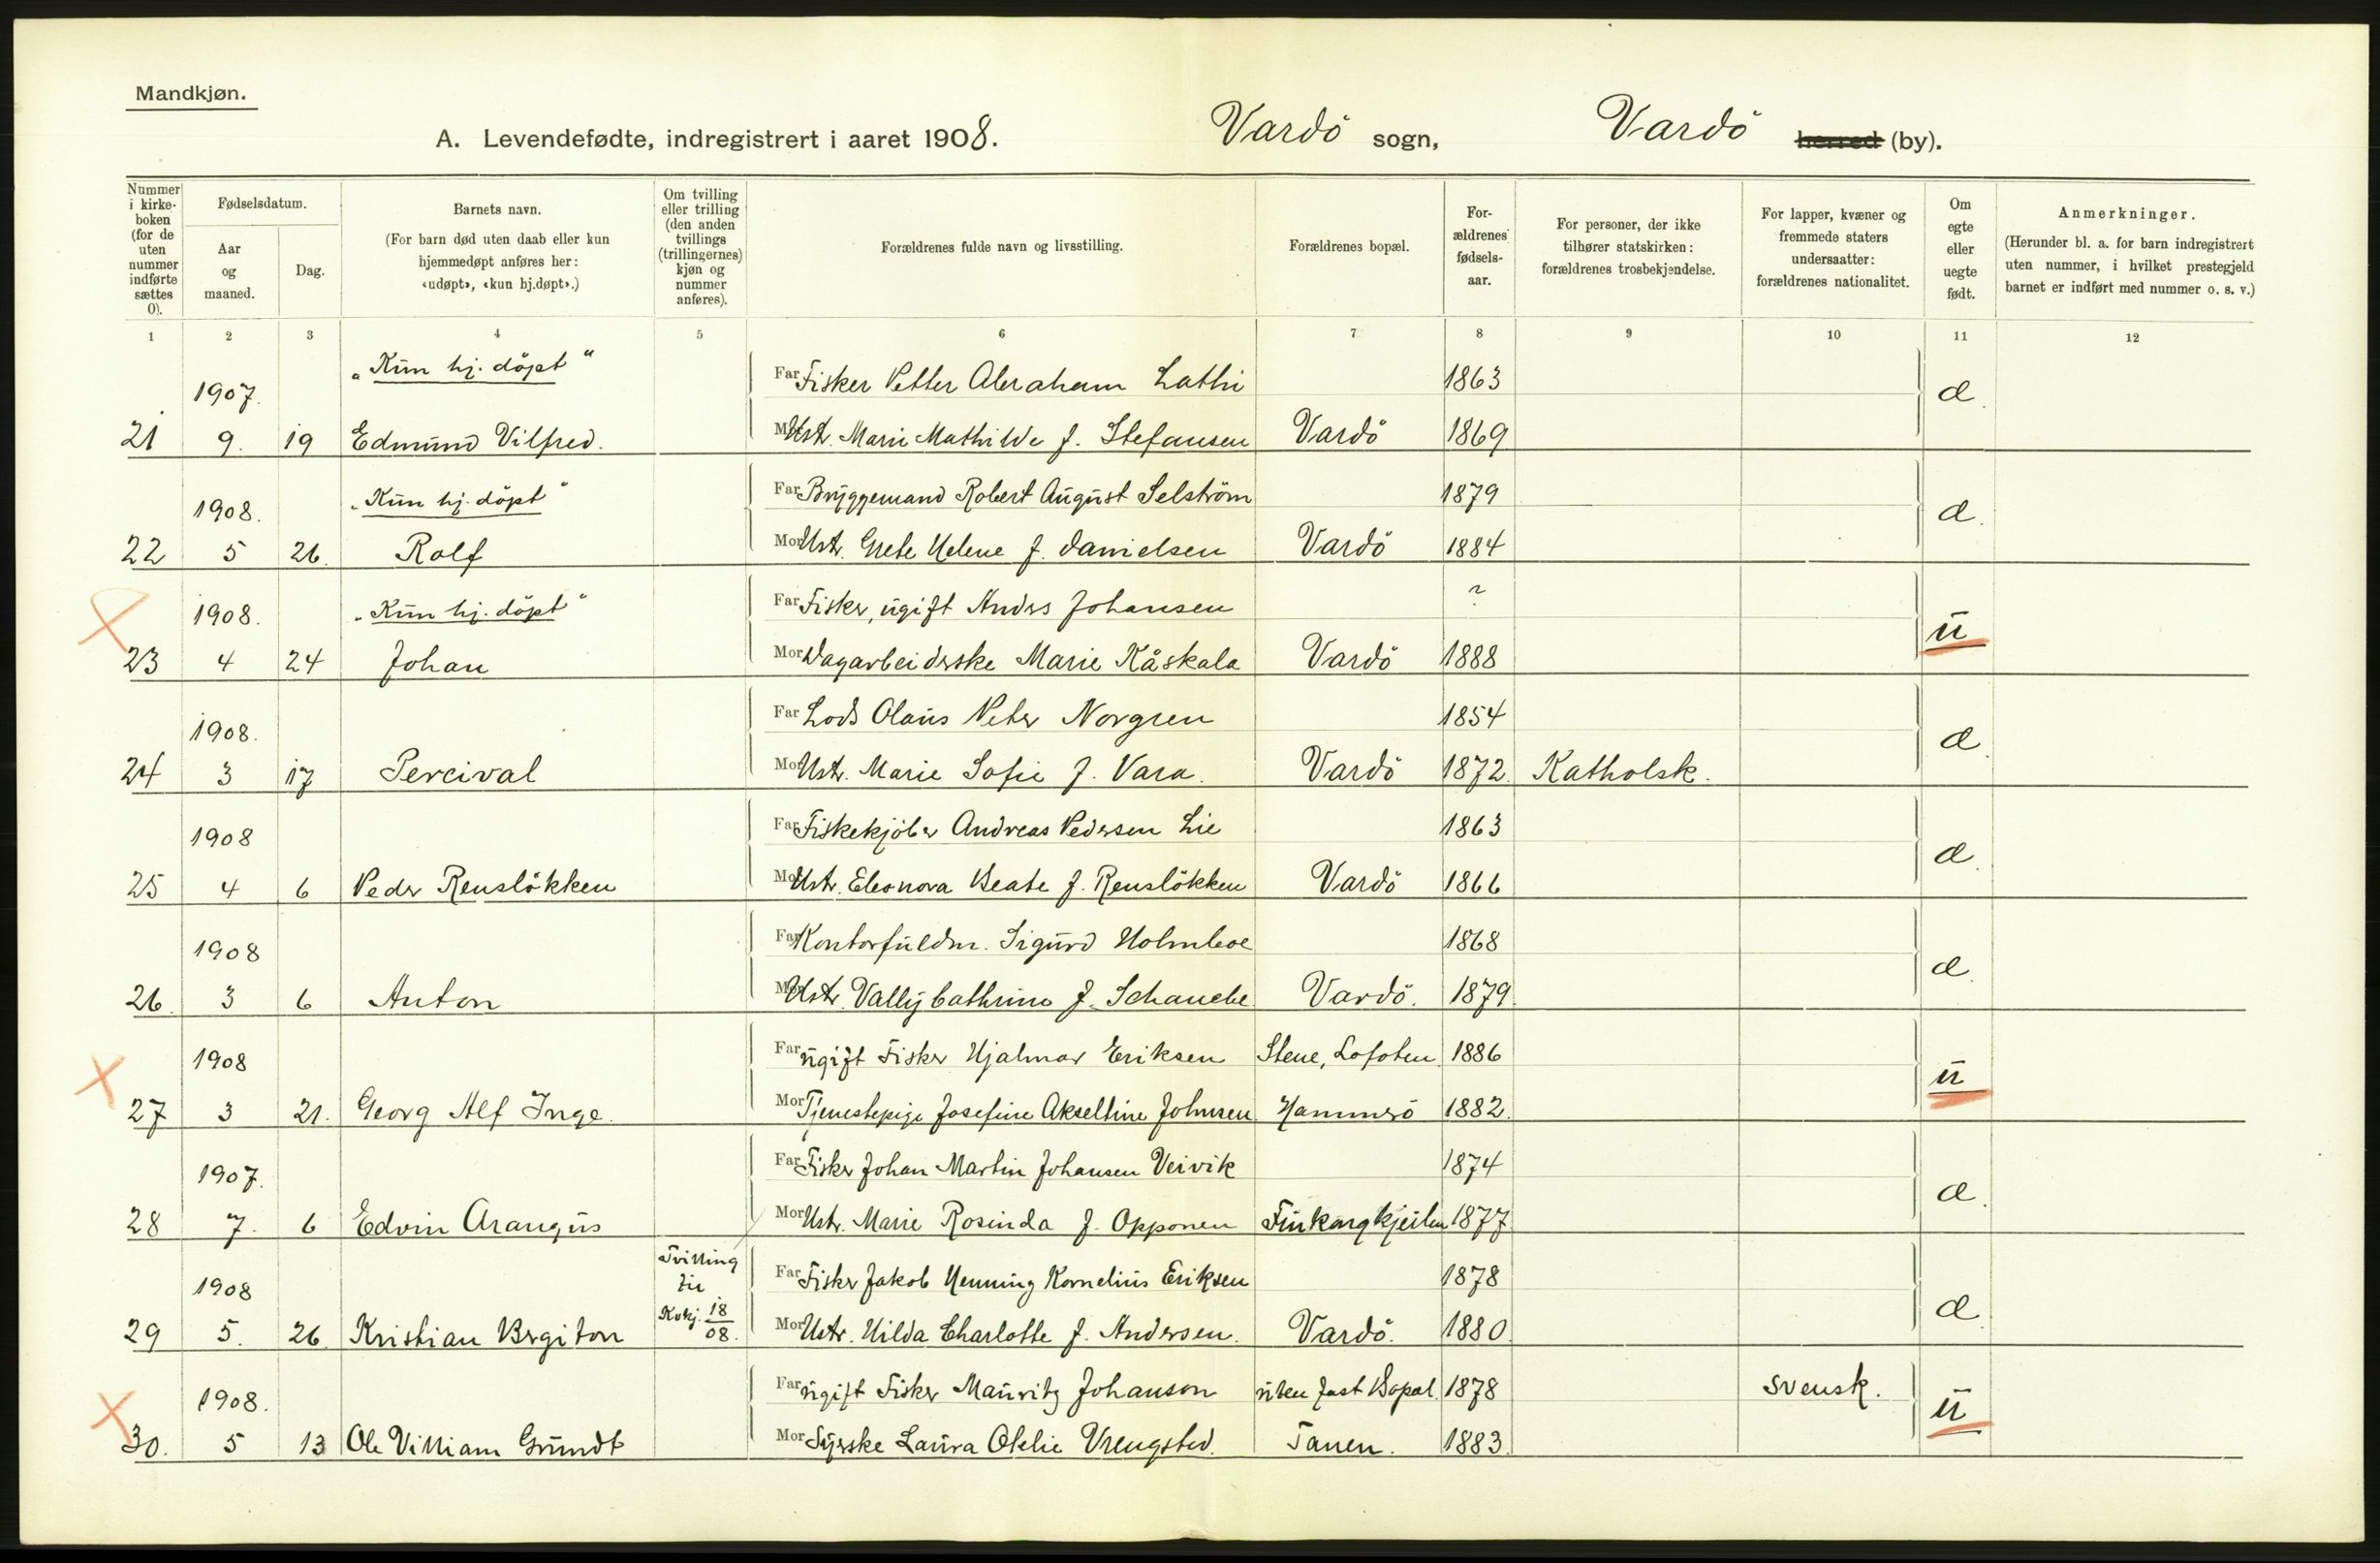 Mandkjøn.
A. Levendefødte, indregistrert i aaret 1908. Vardö sogn, Vardö herred (by).
Nummer i kirke-boken (for de uten nummer indførte sættes 0).
Fødselsdatum.
Aar og maaned.
Dag.
Barnets navn.
(For barn død uten daab eller kun hjemmedøpt anføres her: «udøpt», «kun hj.døpt».)
Om tvilling eller trilling (den anden tvillings (trillingernes) kjøn og nummer anføres).
Forældrenes fulde navn og livsstilling.
Forældrenes bopæl.
For-ældrenes fødsels-aar.
For personer, der ikke tilhører statskirken: forældrenes trosbekjendelse.
For lapper, kvæner og fremmede staters undersaatter: forældrenes nationalitet.
Om egte eller uegte født.
Anmerkninger.
(Herunder bl. a. for barn indregistrert uten nummer, i hvilket prestegjeld barnet er indført med nummer o. s. v.)
1 2 3 4 5 6 7 8 9 10 11 12
1907. „Kun hj. döpt“ Far Fisker Petter Abraham Lathi 1863 æ.
21 9. 19 Edmund Vilfred. Mor Hstr. Marie Mathilde f. Stefansen Vardö 1869
1908. „Kun hj. döpt“ Far Bryggemand Robert August Selström 1879 æ.
22 5 26. Rolf Mor Hstr. Grete Helene f. Danielsen Vardö 1884
1908. „Kun hj. döpt“ Far Fisker, ugift Anders Johansen ? u
23 4 24 Johan Mor Dagarbeiderske Marie Kåskala Vardö 1888
1908. Far Lods Olaus Peter Norgren 1854 æ.
24 3 17 Percival Mor Hstr. Marie Sofie f. Vara. Vardö 1872. Katholsk.
1908 Far Fiskekjöber Andreas Pedersen Lie 1863 æ.
25 4 6 Peder Renslökken Mor Hstr. Eleonora Beate f. Renslökken Vardö 1866
1908 Far Kontorfuldm. Sigurd Holmboe 1868 æ.
26. 3 6 Anton Mor Hstr. Vally Cathrine f. Schanche Vardö. 1879.
1908 Far ugift Fisker Hjalmar Eriksen Stene, Lofoten. 1886 u
27 3 21. Georg Alf Inge. Mor Tjenestepige Josefine Akseltine Johnsen Hammerö 1882.
1907. Far Fisker Johan Martin Johansen Veivik 1874 æ.
28 7. 6 Edvin Arangus Mor Hstr. Marie Rosinda f. Opponen 1877
1908 Tvilling til Kvkj. 18/08. Far Fisker Jakob Henning Kornelius Eriksen 1878 æ.
29 5. 26. Kristian Bergiton Mor Hstr. Hilda Charlotte f. Andersen. Vardö. 1880.
1908. Far ugift Fisker Mauritz Johanson uten fast Bopæl. 1878 svensk. u
30. 5 13 Ole Villiam Grundt Mor Syerske Laura Otelie Tanen. 1883.